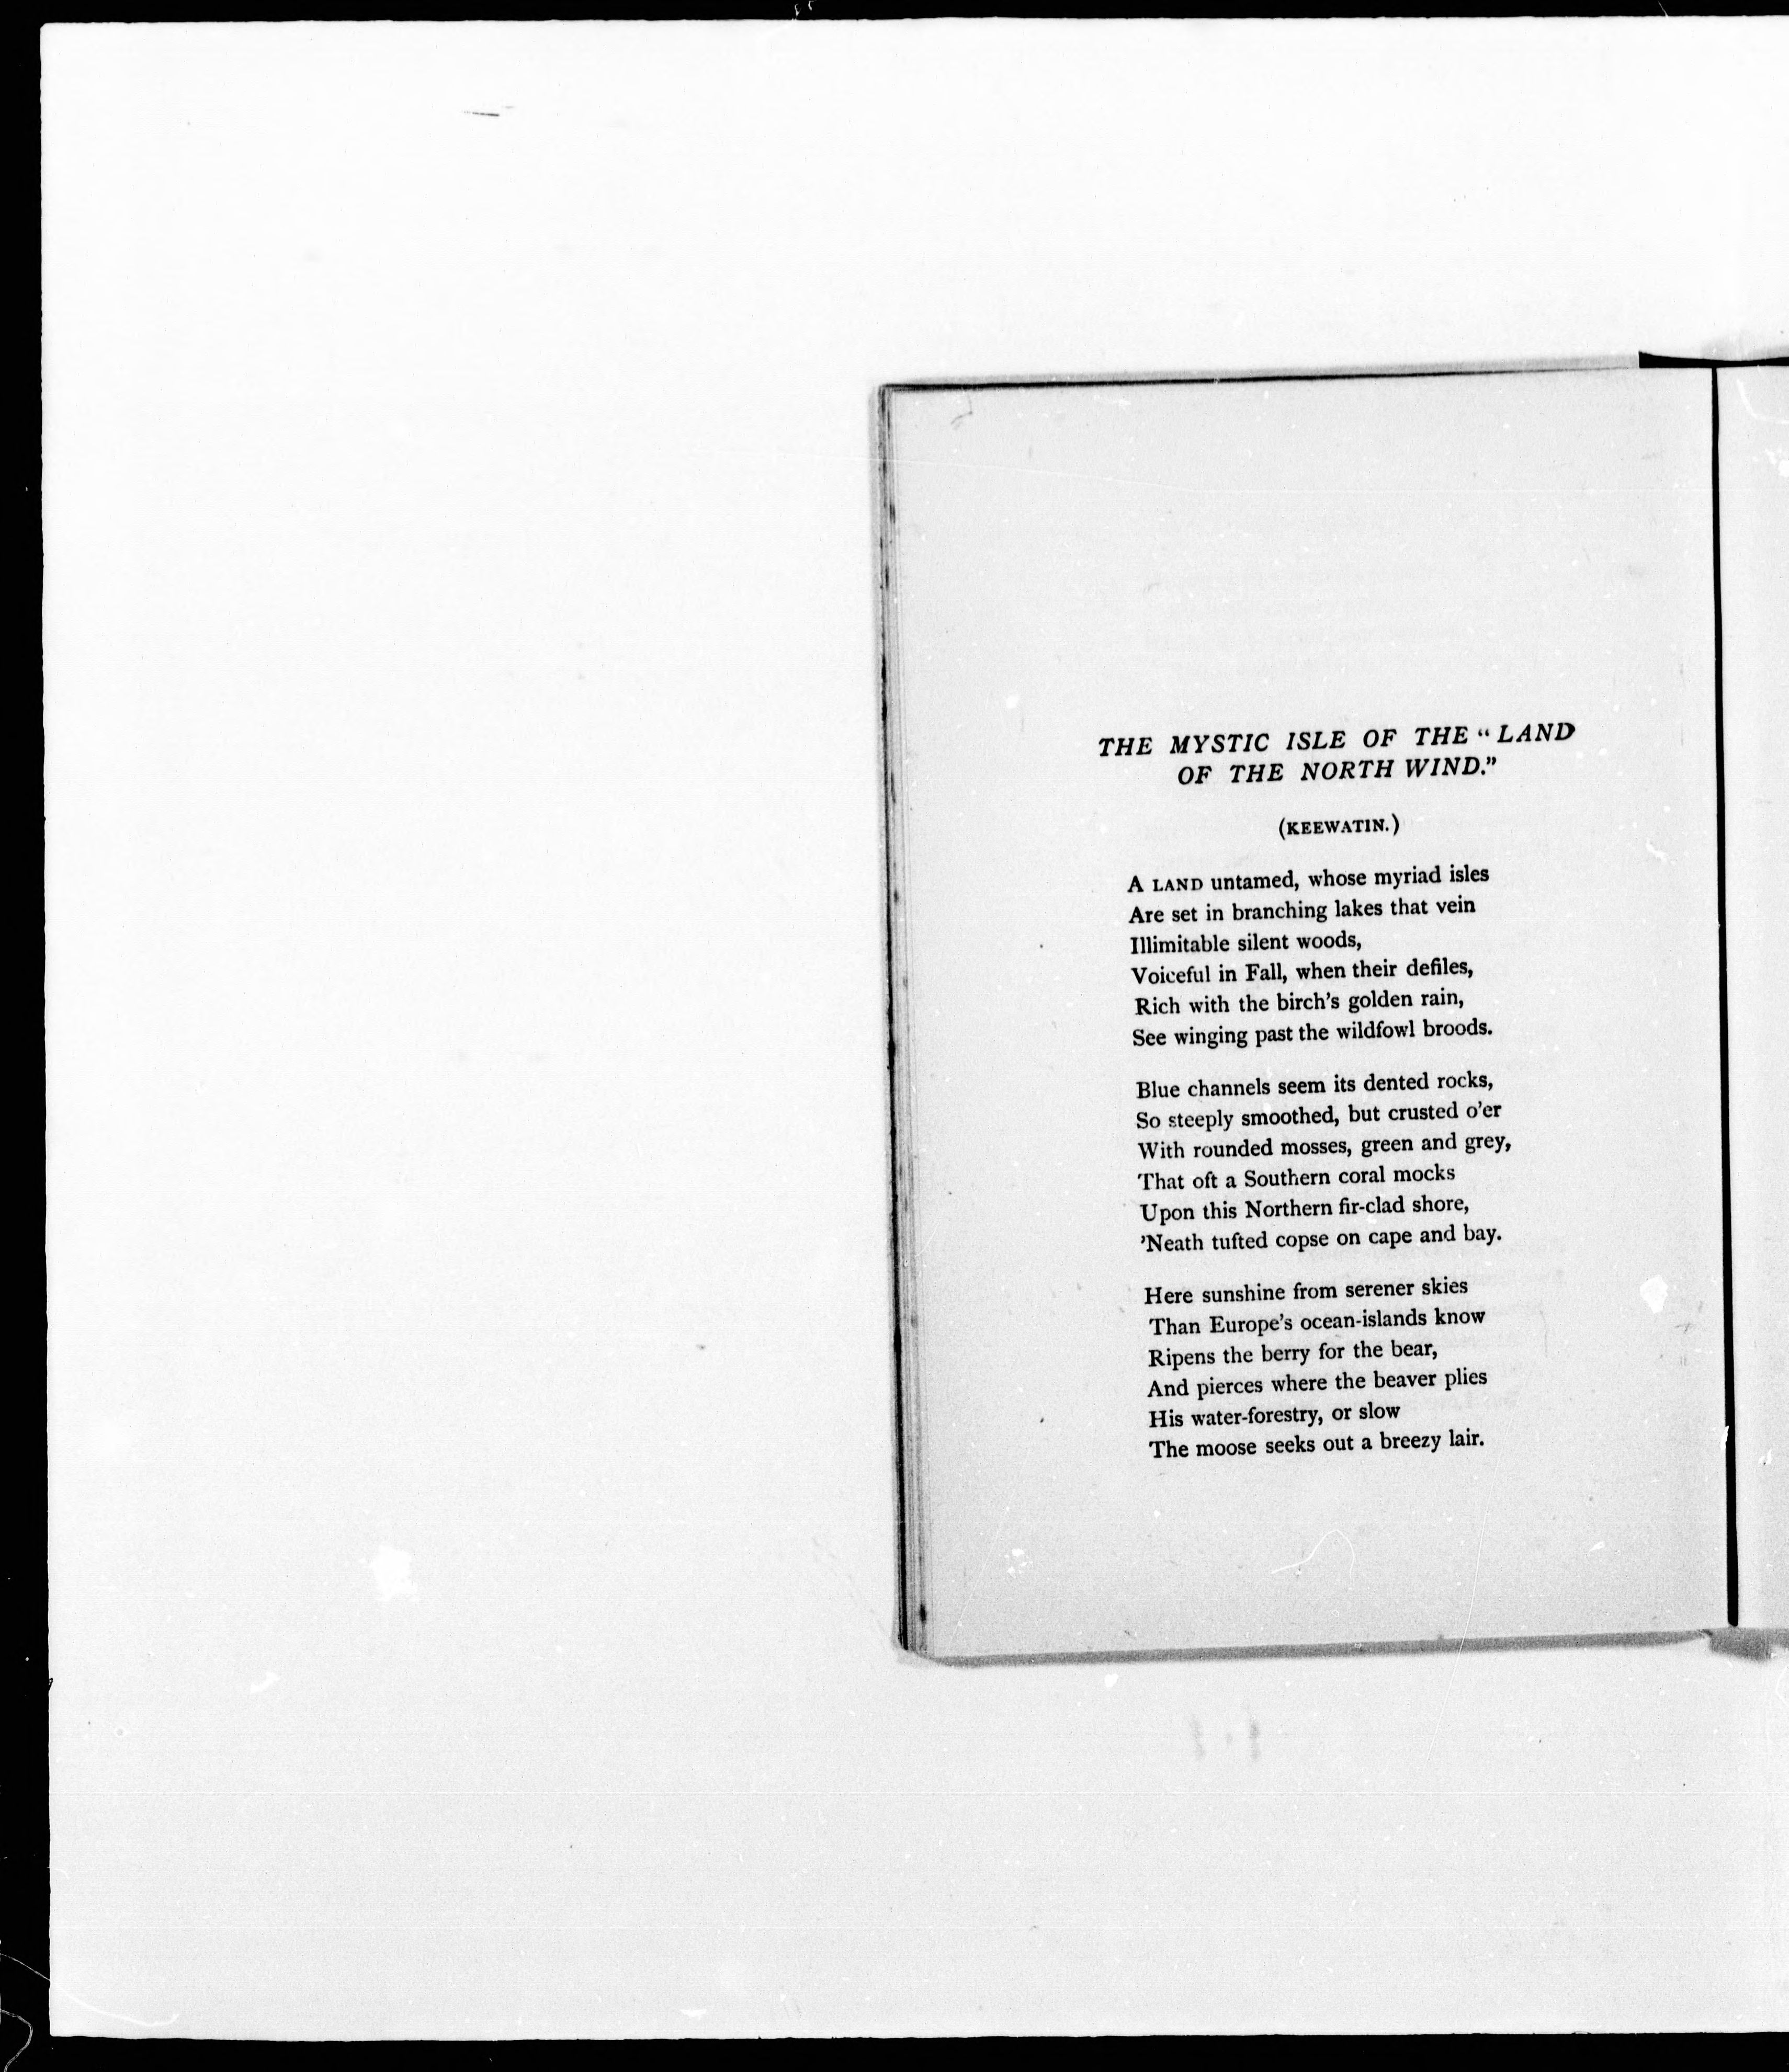 THE MYSTIC ISLE OF THE “LAND
OF THE NORTH WIND.”
(KEEWATIN.)
A LAND untamed, whose myriad isles
Are set in branching lakes that vein
Illimitable silent woods,
Voiceful in Fall, when their defiles,
Rich with the birch’s golden rain,
See winging past the wildfowl broods.
Blue channels seem its dented rocks,
So steeply smoothed, but crusted o’er
With rounded mosses, green and grey,
That oft a Southern coral mocks
Upon this Northern fir-clad shore,
’Neath tufted copse on cape and bay.
Here sunshine from serener skies
Than Europe’s ocean-islands know
Ripens the berry for the bear,
And pierces where the beaver plies
His water-forestry, or slow
The moose seeks out a breezy lair.